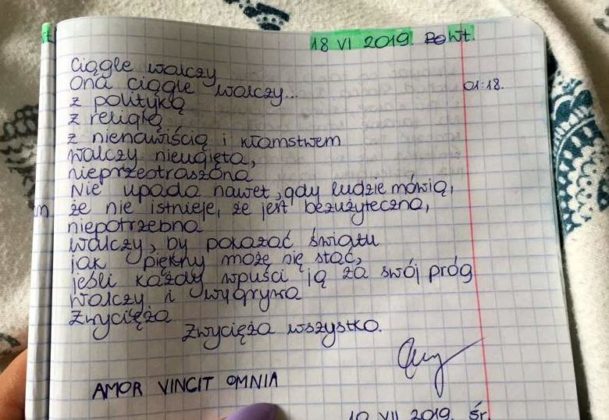 18 VI 2019. Wt.
01:18.
Ciągle walczy
Ona ciągle walczy...
z polityką
z religią
z nienawiścią i kłamstwem
walczy nieugięta,
nieprzestraszona
Nie upada nawet, gdy ludzie mówią,
że nie istnieje, że jest bezużyteczna,
niepotrzebna
walczy, by pokazać światu
jak piękny może się stać,
jeśli każdy wpuści ją za swój próg
walczy i wygrywa
Zwycięża
Zwycięża wszystko.
AMOR VINCIT OMNIA
10 VII 2019. śr.